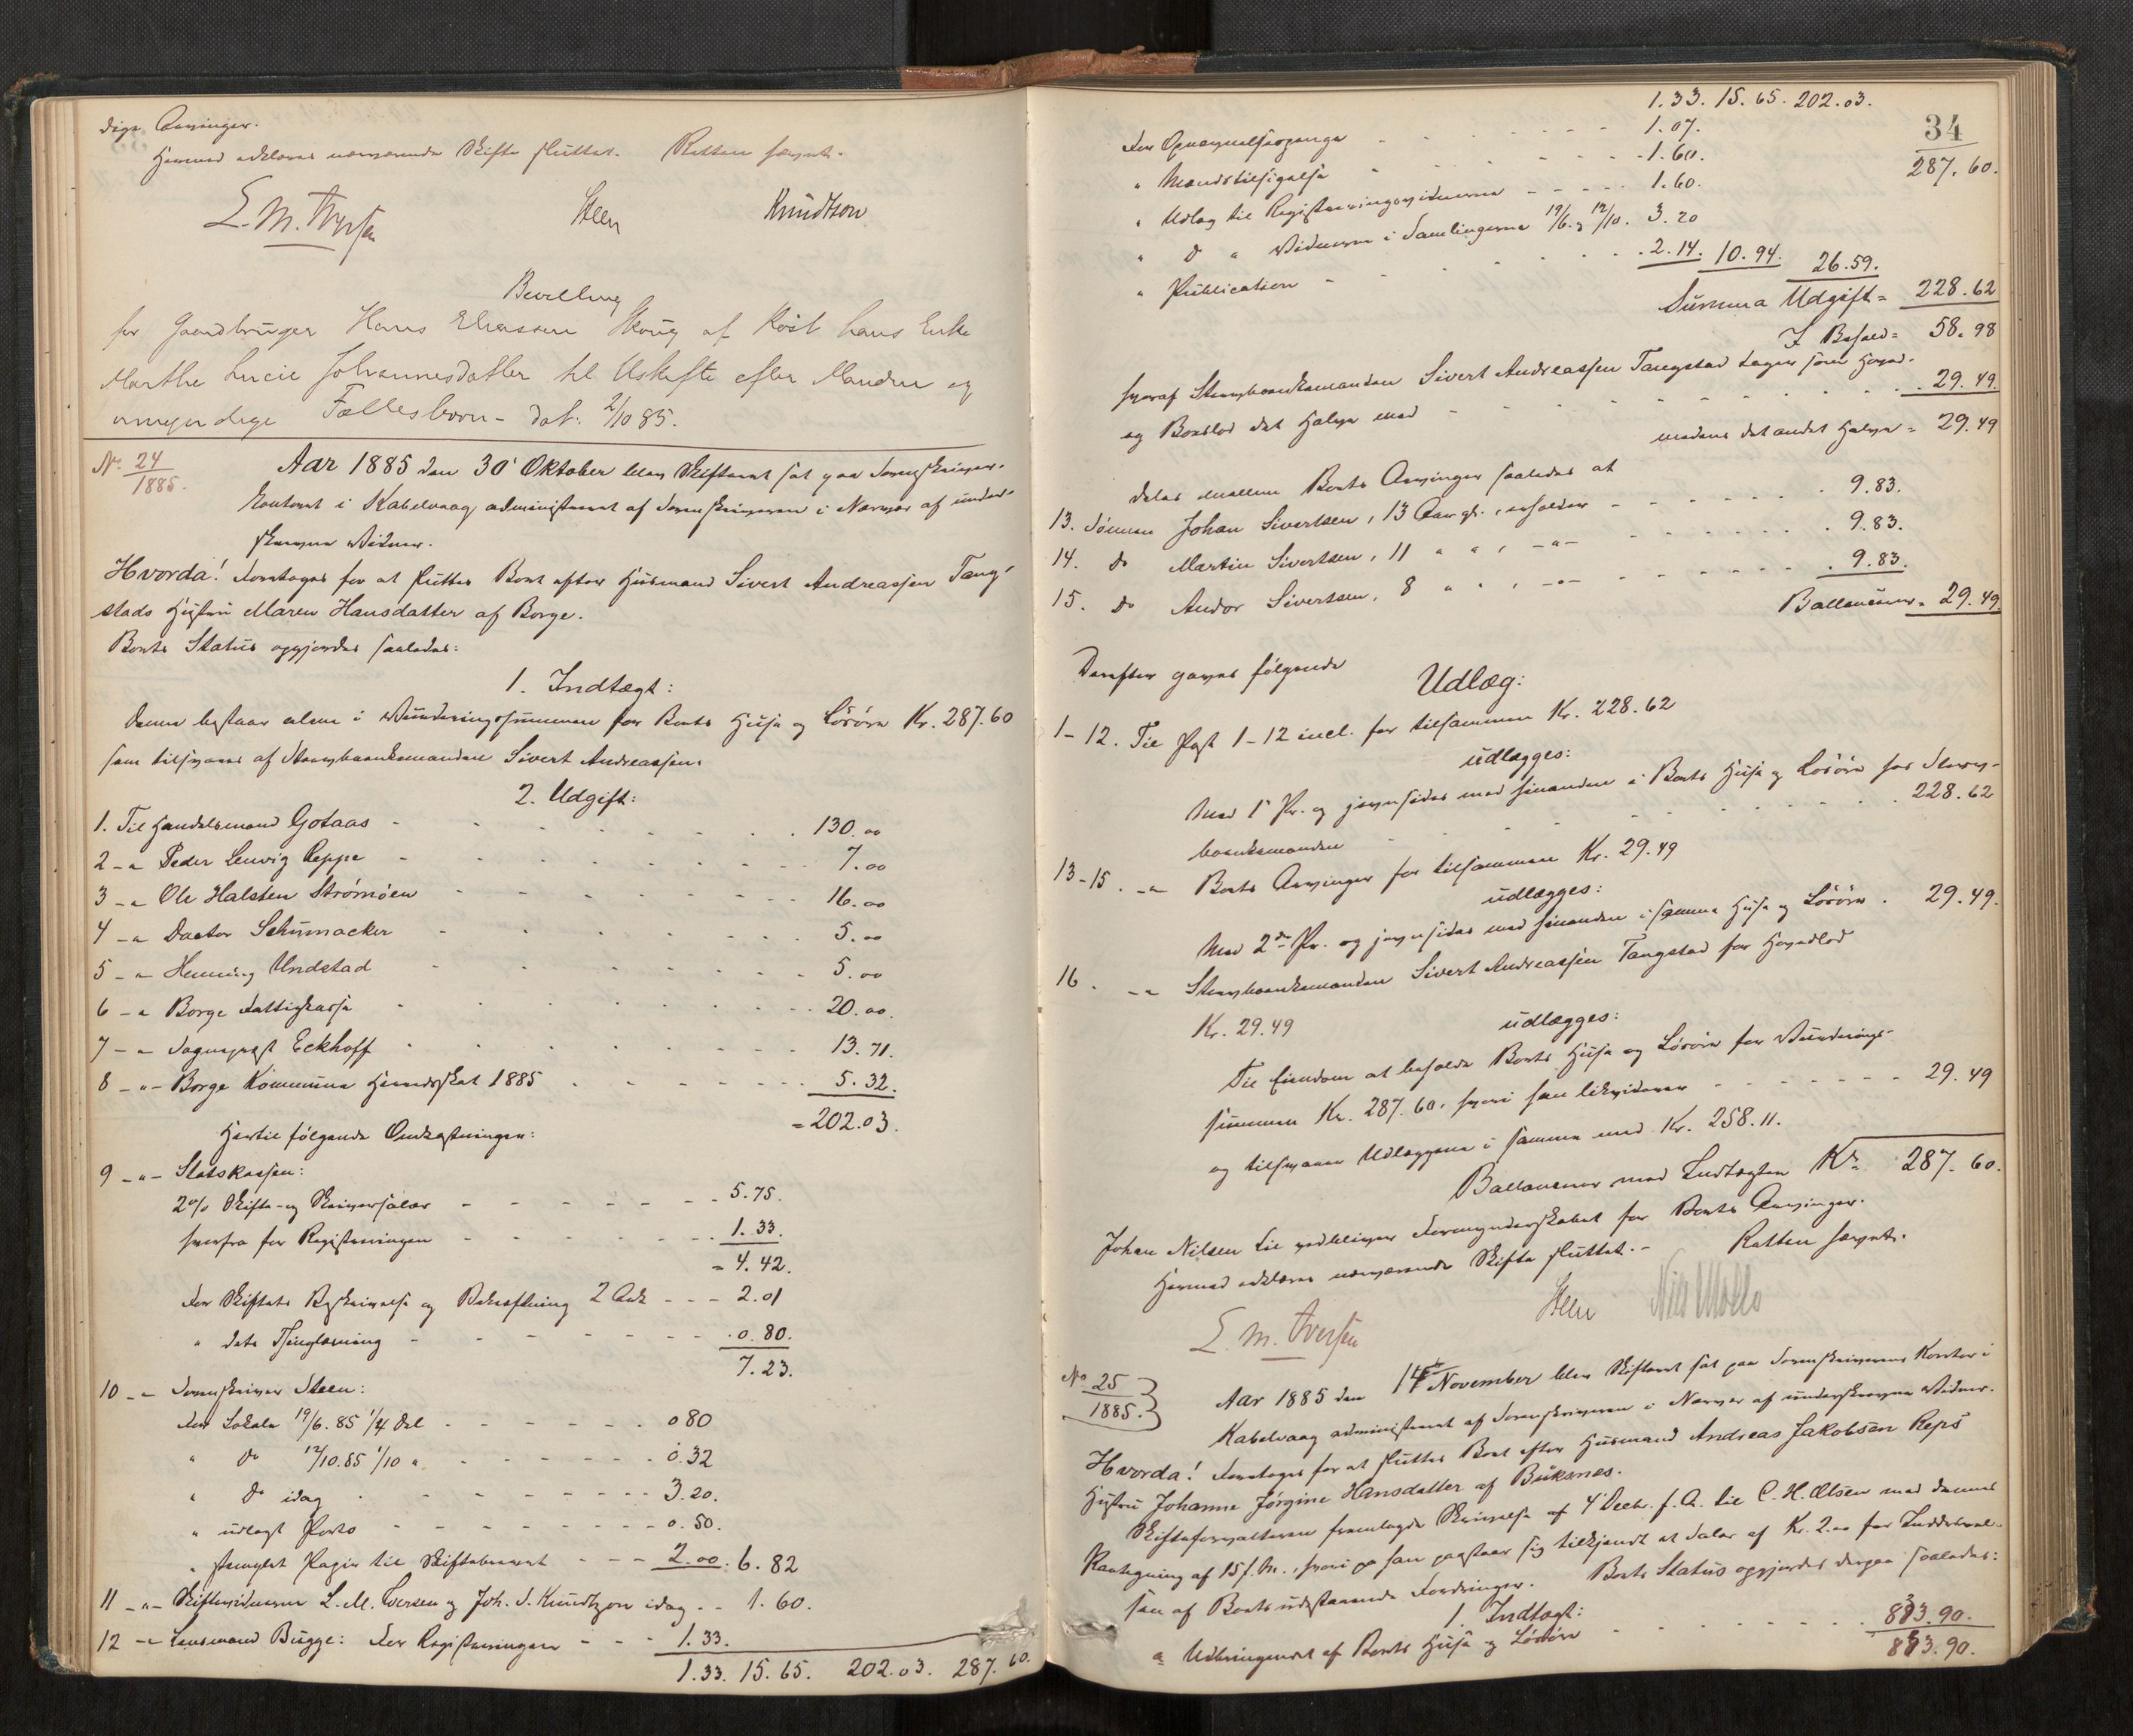 dige Arvinger.
Hermed erklæres nærværende Skifte sluttet. Retten hævet.
L. M. Iversen Steen Knudtson
Bevilling
for Gaardbruger Hans Eliassen Skoug af Röst hans Enke
Marthe Lucie Johannesdatter til Uskifte efter Manden og
umyndige Fællesbörn - dat: 2/10 85.
No. 24/1885.
Aar 1885 den 30' Oktober blev Skifteret sat paa Sorenskriver-
kontoret i Kabelvaag, administreret af Sorenskriveren i Nærvær af under-
skrevne Vidner.
Hvorda! Foretoges for at sluttes Boet efter Husmand Sivert Andreassen Tang-
stads Hustru Maren Hansdatter af Borge.
Boets Status opgjordes saaledes:
1. Indtægt:
Denne bestaar alene i Vurderingssummen for Boets Huse og Lösöre Kr. 287.60
som tilsvares af Stervboenkemanden Sivert Andreassen.
2. Udgift:
1. Til Handelsmand Gotaas - 130.00
2 - " Peder Leuvig Reppe - 7.00
3 - " Ole Halsten Strömöen - 16.00
4 - " Doctor Schumacker - 5.00
5 - " Henning Undstad - 5.00
6 - " Borge Fattigkasse - 20.00.
7 - " Sogneprest Eckhoff - 13.71.
8 - " - Borge Kommune Herredsskat 1885 - 5.32.
= 202.03.
Hertil fölgende Omkostninger:
9 - " - Statskassen:
2 % Skifte- og Skriversalær - 5.75.
herfra for Registreringen - 1.33.
= 4.42.
For Skiftets Beskrivelse og Bekræftning 2 Ark - - - 2.01
" dets Thinglæsning - 0.80.
7.23.
10 - " Sorenskriver Steen:
For Lokale 19/6. 85 1/4 Del - 0 80
" Do 12/10. 85 1/10 " - 0.32
" Do idag - 3.20.
" udlagt Porto - 0.50.
" stemplet Papir til Skiftebrevet - - - 2.00. 6.82
11 - " - Skiftevidnerne L. M. Iversen og Joh. S. Knudtzon idag - - 1.60.
12 - " Lensmand Bugge: For Registreringen - - - 1.33.
1.33. 15.65. 202.03. 287.60.
34
1.33. 15.65. 202.03.
287.60.
For Opnævnelsesgange - 1.07.
" Mændstilsigelse - 1.60.
" Udlag til Registreringsvidnerne - 1.60.
" Do " Vidnerne i Samlingerne 19/6. og 12/10. 3.20
" Publication - 2.14. 10.94. 26.59.
Summa Udgift = 228.62
I Behold = 58.98
hvoraf Stervboenkemanden Sivert Andreassen Tangstad tager som Hoved-
og Boeslod det Halve med - 29.49.
medens det andet Halve = 29.49
deles mellem Boets Arvinger saaledes at
13. Sönnen Johan Sivertsen, 13 Aar gl. , erholder - 9.83.
14. Do Martin Sivertsen, 11 " " , - " - 9.83.
15. Do Andor Sivertsen, 8 " " , - " - 9.83.
Ballancerer. 29.49
Derefter gaves fölgende
Udlæg:
1-12. Til Post 1-12 incl. for tilsammen Kr. 228.62
udlægges:
Med 1' Pr. og jevnsides med hinanden i Boets Huse og Lösöre hos Sterv-
boenkemanden - 228.62
13-15. - " Boets Arvinger for tilsammen Kr. 29.49
udlægges:
Med 2den Pr. og jevnsides med hinanden i samme Huse og Lösöre . 29.49.
16. - " Stervboenkemanden Sivert Andreassen Tangstad for Hovedlod
Kr. 29.49
udlægges:
Til Eiendom at beholde Boets Huse og Lösöre for Vurderings-
summen Kr. 287.60, hvori han likviderer - 29.49
og tilsvarer Udlæggene i samme med Kr. 258.11.
Ballancerer med Indtægten Kr. 287.60.
Johan Nilsen Lie vedbliver Formynderskabet for Boets Arvinger.
Hermed erklæres nærværende Skifte sluttet. - Retten hævet.
L. M. Iversen Steen
No 25/1885.
Aar 1885 den 14de November blev Skifteret sat paa Sorenskriverens Kontor i
Kabelvaag administreret af Sorenskriveren i Nærvær af underskrevne Vidner.
Hvorda! Foretoges for at sluttes Boet efter Husmand Andreas Jakobsen Reps
Hustru Johanne Jörgine Hansdatter af Buksnes.
Skifteforvalteren fremlagde Skrivelse af 4' Decbr. f. A. til C. H. Olsen med dennes
Paategning af 15 s. M., hvori han paastaar sig tilkjendt et Salær af Kr. 2.00 for Inddrivel-
sen af Boets udestaaende Fordringer. Boets Status opgjordes derpaa saaledes:
1. Indtægt:
a Udbringendet af Boets Huse og Lösöre - 883.90.
883.90.